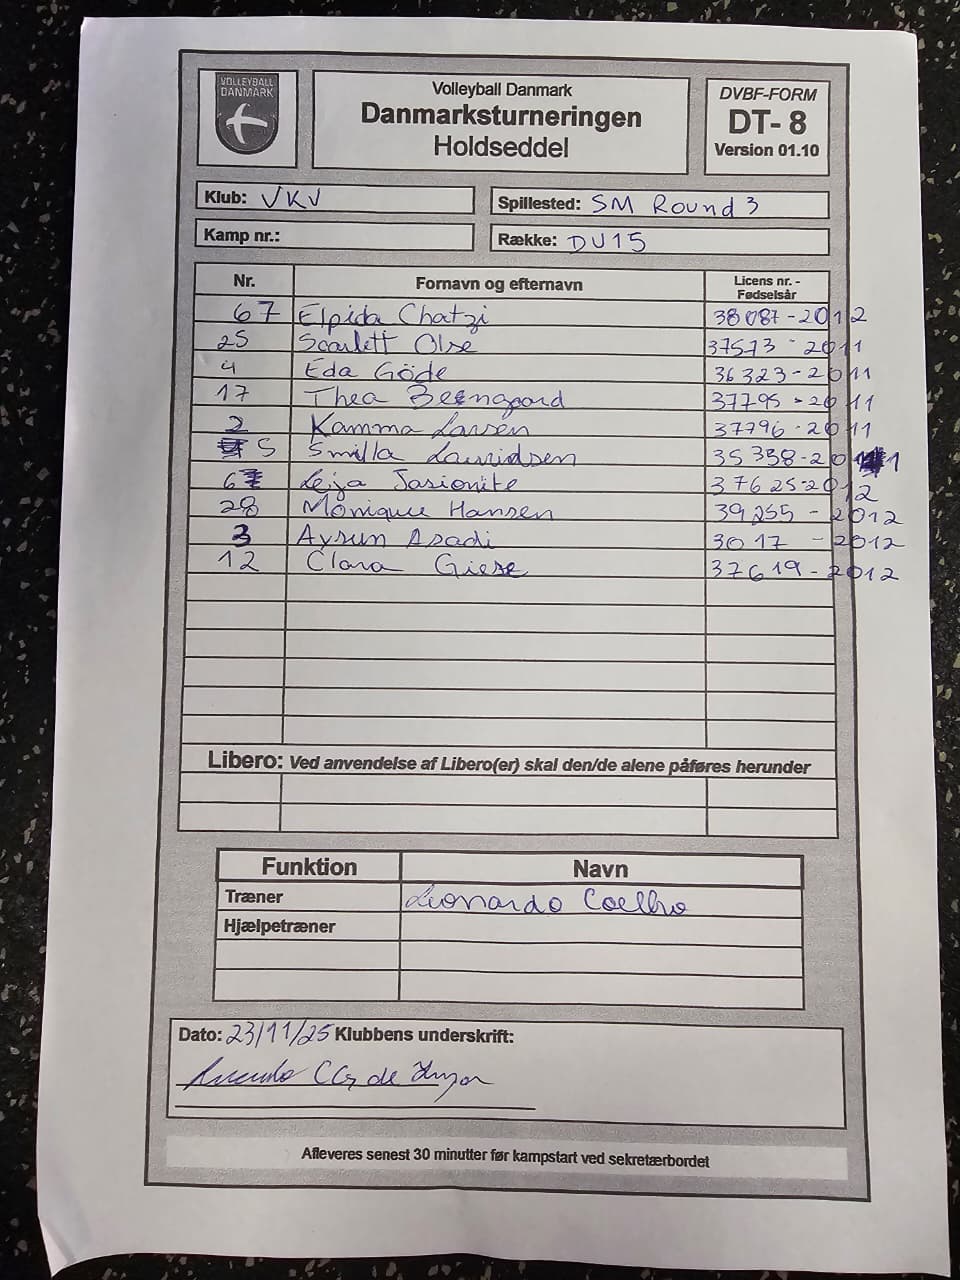 VOLLEYBALL
DANMARK
Volleyball Danmark
Danmarksturneringen
Holdseddel
DVBF-FORM
DT- 8
Version 01.10
Klub: VKV
Spillested: SM Round 3
Kamp nr.:
Række: DU15
Nr. Fornavn og efternavn Licens nr. - Fødselsår
67 Elpida Chatzi 38087-2012
25 Scarlett Olse 37573-2011
4 Eda Göde 36323-2011
17 Thea 37795-2011
2 Kamma Larsen 37796-2011
5 Smilla Lauridsen 35398-2011
6 Leja Jasionite 37625-2012
28 Monique Hansen 39255-2012
3 Aysun Asadi 3017-2012
12 Clara Giese 37619-2012
Libero: Ved anvendelse af Libero(er) skal den/de alene påføres herunder
Funktion Navn
Træner Leonardo Coelho
Hjælpetræner
Dato: 23/11/25 Klubbens underskrift:
Afleveres senest 30 minutter før kampstart ved sekretærbordet